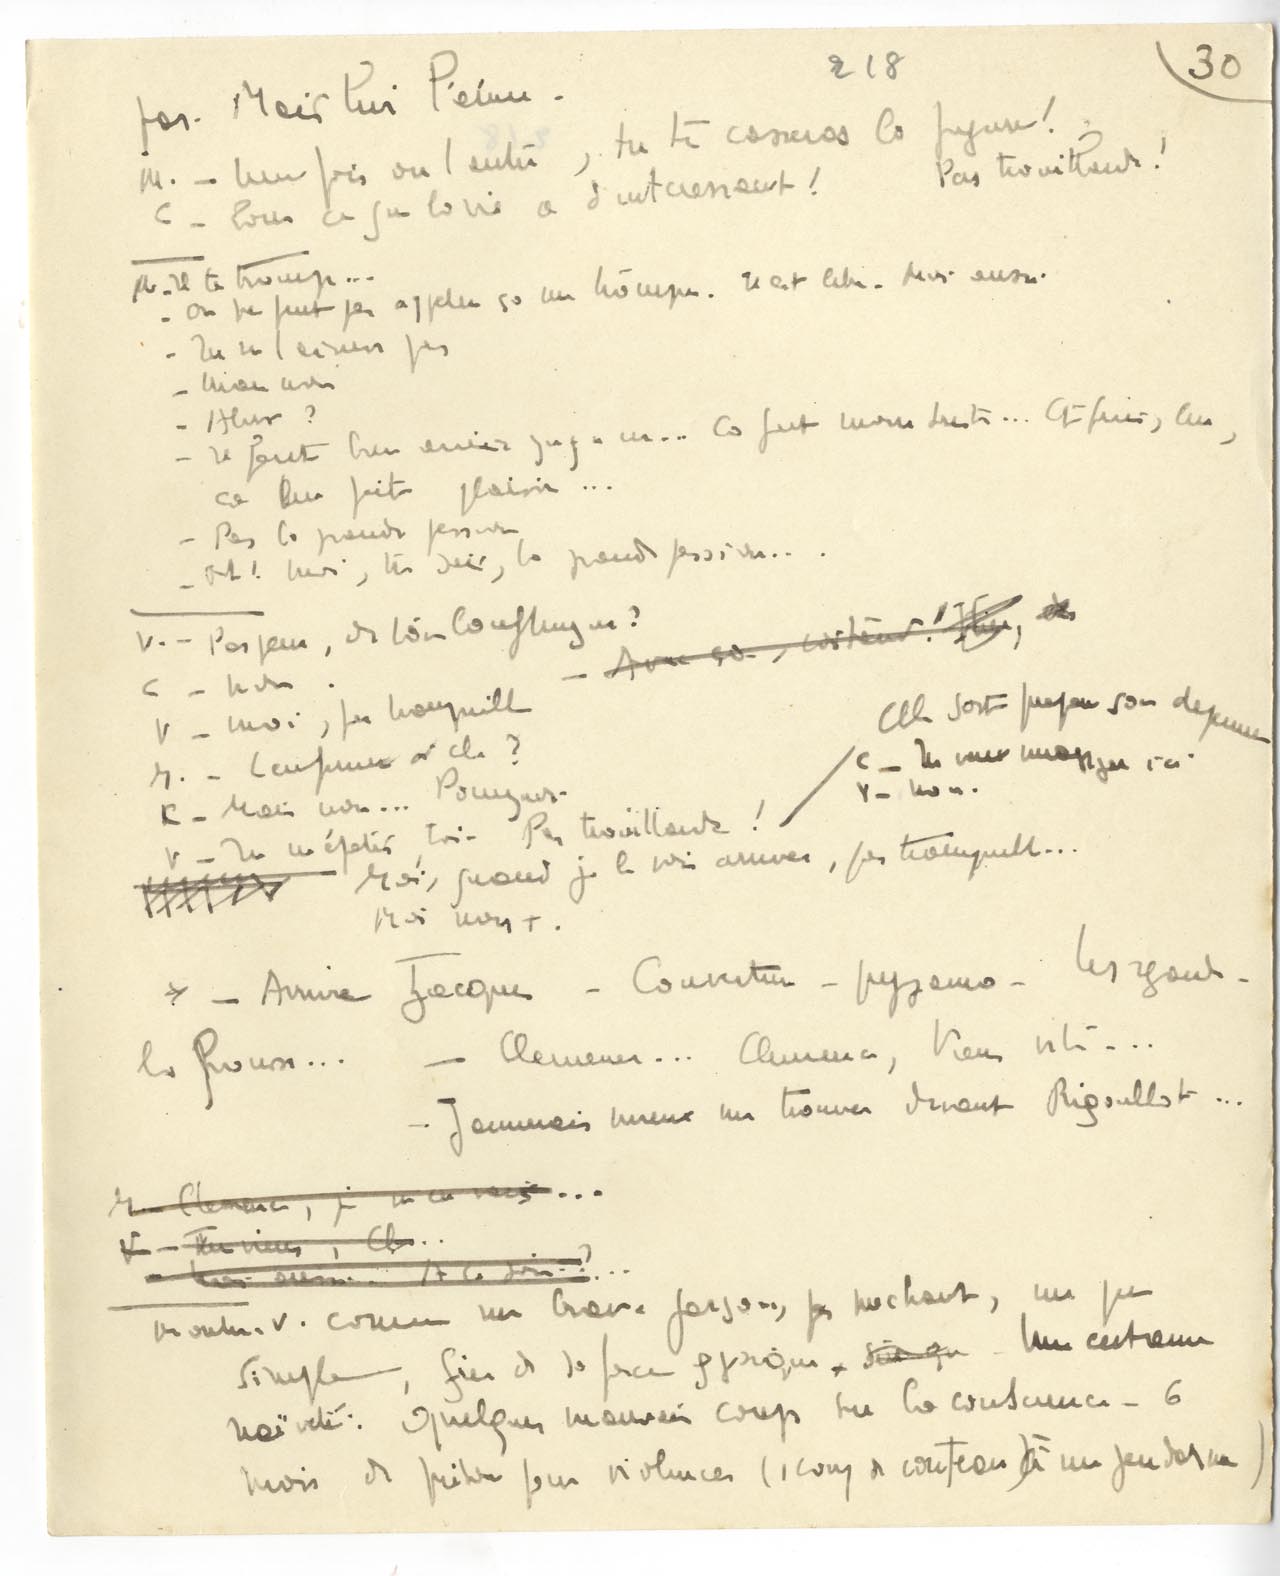 218
30
pas. Mais lui l'aime -
M. - Une fois ou l'autre, tu te casseras la figure!
C - Pour ce que la vie a d'intéressant! Pas trouillarde!
M. - Il te trompe...
- On ne peut pas appeler ça me tromper. Il est libre. Moi aussi.
- Tu ne l'aimes pas
- Mon
- Alors?
- Il faut bien aimer quelqu'un... Et puis, lui,
ça lui fait plaisir...
- Pas la grande passion
- Oh! moi, tu sais, la grande passion...
V. - Pas peur, de
C - Non.
- Avec ça,
V - Moi, pas tranquille
M. - Leufroux a clé?
K - Mais non... Pourquoi
V - Tu m'épates toi - Pas trouillarde!
Elle sort préparer son déjeuner
C - Tu veux manger ici
V - Non.
Moi, quand je le vois arriver, pas tranquille...
Moi non +.
- Arrive Jacques - Couverture - pyjama - Les regarde -
la frousse... - Clémence... Clémence, viens vite...
- J'aimerais mieux me trouver devant Rigoullot...
M - Clémence, je m'en vais...
V - Tu viens, Cl...
- Moi aussi... A ce soir?...
Montrer V. comme un brave garçon, pas méchant, un peu
simple, fier de sa force physique. Une certaine
naïveté. Quelques mauvais coups sur la conscience - 6
mois de prison pour violences (1 coup de couteau à un gendarme)